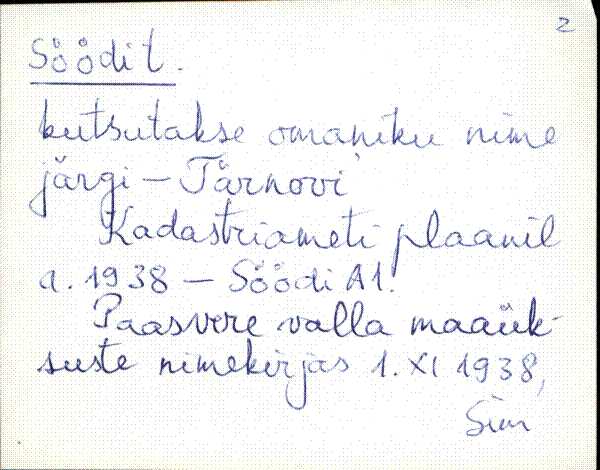 2
Söödi t.
kutsutakse omaniku nime
järgi – Tärnovi
Kadastriameti plaanil
a. 1938 – Söödi A1.
Paasvere valla maaük-
suste nimekirjas 1. XI 1938,
Sim